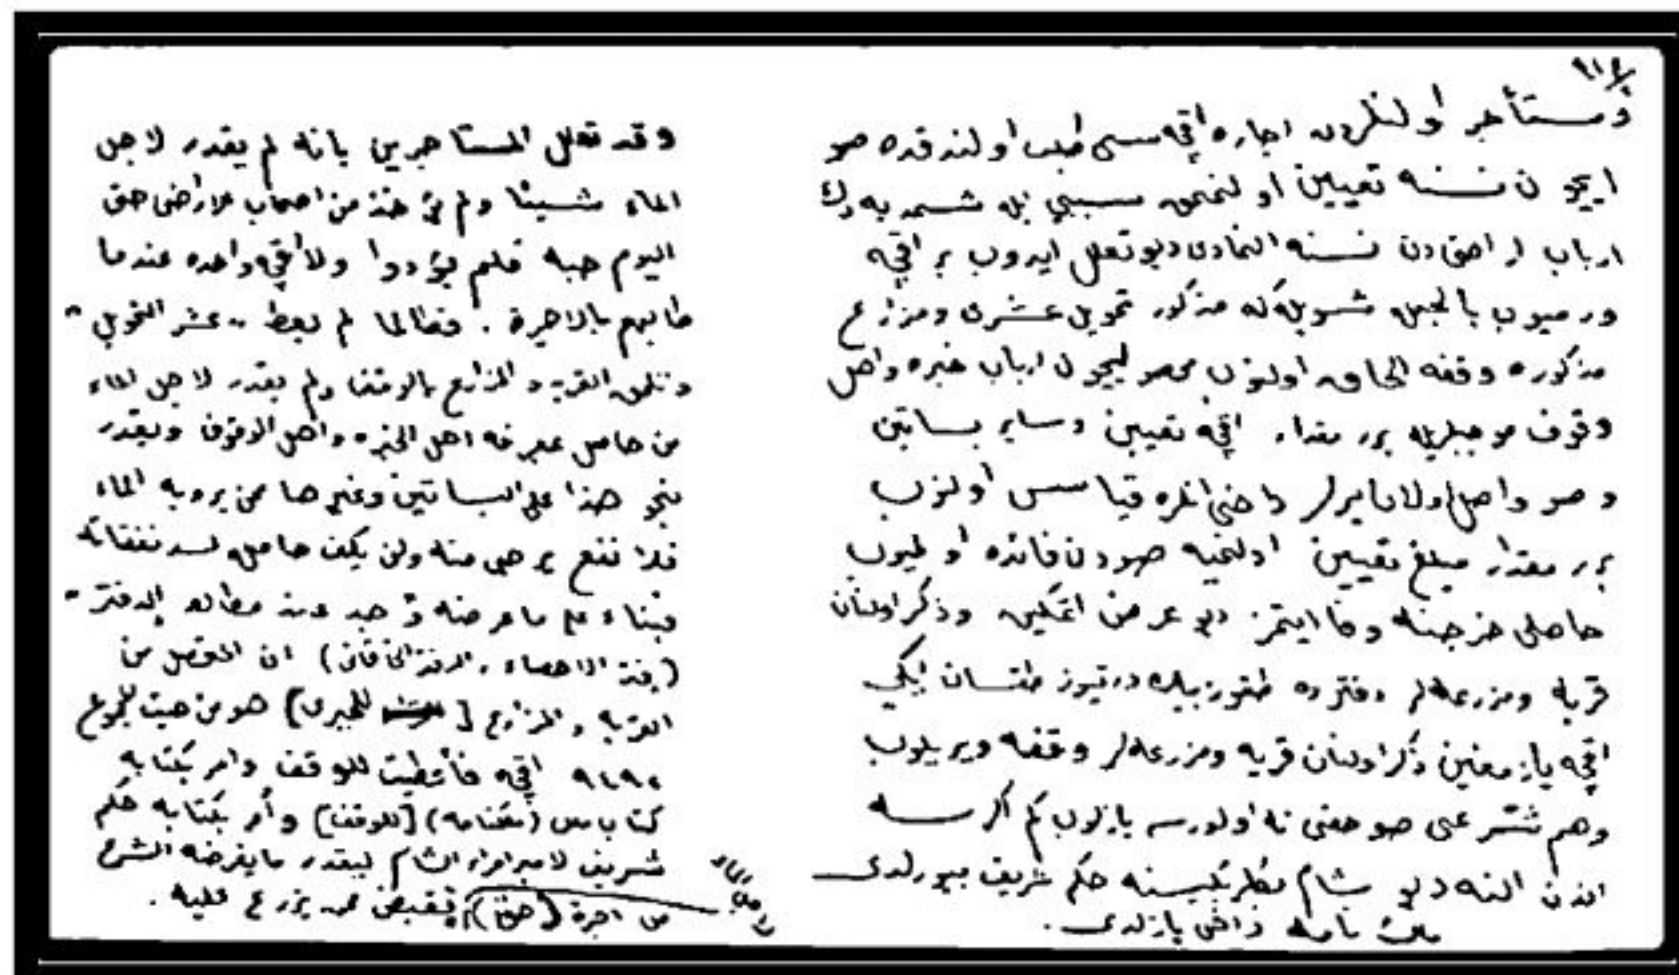 ٩١٤
ومستأجر اولنلردن اجاره اقچه سى طلب اولندقده صو
ايچون نسنه تعيين اولنمق سببى بله شمديه دك
ارباب اراضيدن نسنه النمادى ديو تعلل ايدوب بر اقچه
ورميوب بالجمله شويله كه مذكور تحويل عشرى ومزارع
مذكوره وقفه الحاق اولنوب محصوليچون ارباب خبره واهل
وقوف موجبليله بر مقدار اقچه تعيين وساير بساتين
وصو واصل اولان يرلر داخى انلره قياس اولنوب
بر مقدار مبلغ تعيين اولنميه صودن فائده اولميوب
حاصلى خرجنه وفا ايتمز ديو عرض اتمكين وذكر اولنان
قريه ومزرعه لر دفترده طقوز بيك درتيوز طقسان ايكى
اقچه يازمغين ذكر اولنان قريه ومزرعه لر وقفه ويريلوب
وهم شرعى صو حقى نه اولورسه يازلوب كم اكرسه
اندن النه ديو شام بكلربكيسنه حكم شريف بيورلدى
ملك نامه داخى يازلدى .
وقد تعلل المستأجرين بانه لم يقدر لاجل
الماء شيئا ولم تؤخذ من اصحاب الاراضى حتى
اليوم حبة فلم يؤدوا ولا أقچه واحده عندما
طالبهم بالاجرة . فطالما لم يعط .. عشر التحويل
وتلحق القرية والمزارع بالوقف ولم يقدر لاجل الماء
من حاصل بمعرفة اهل الخبره واهل الوقوف ويقدر
بنحو هذا على البساتين وغيرها ممن يرويه الماء
فلا نفع يرجى منه ولن يكف حاصله لسد نفقاته
فبناء على ما عرضه وُجد عند مطالعه الدفتر -
(دفتر الاحصاء ، الدفتر الخاقانى) ان المتحصل من
القريه والمزارع [للميرى] هو من حيث المجموع
٩٤٩٢ اقچه فأعطيت للوقف وامر بكتابه
كتاب ملك (ملكنامه) [للوقف] وأمر بكتابه حكم
شريف لامير امراء الشام ليقدر ما يفرضه الشرع
من اجرة (حق) فتقبض ممن يزرع عليه .
لاجل الماء